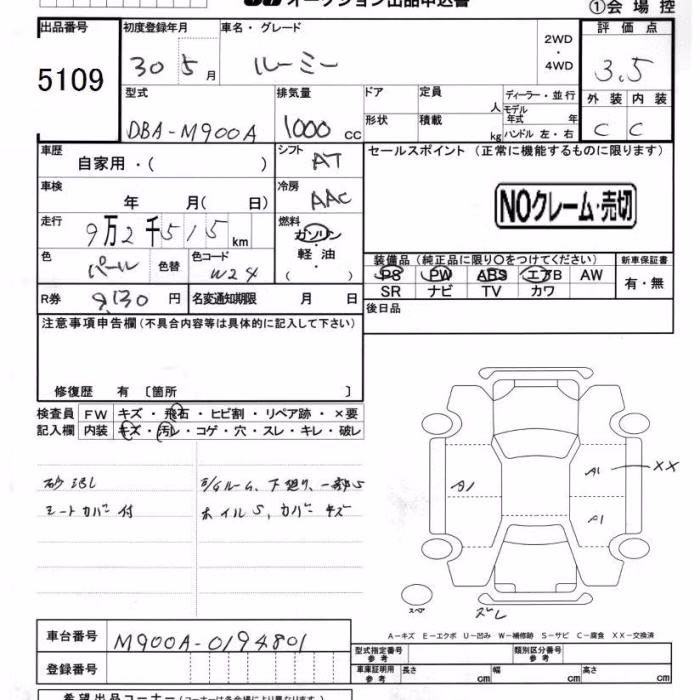 オークション出品申込書
①会場控
出品番号
5109
初度登録年月
30 5月
車名・グレード
ルーミー
2WD
・
4WD
評価点
3.5
外装 内装
C C
型式
DBA-M900A
排気量
1000 cc
ドア
定員
人
形状
積載
kg
ディーラー・並行
モデル
年式 年
ハンドル 左・右
車歴
自家用・( )
シフト
AT
セールスポイント (正常に機能するものに限ります)
NOクレーム・売切
車検
年 月( 日)
冷房
AAC
走行
9万2千515km
燃料
ガソリン
・
軽油
( )
色
パール
色替
色コード
W24
装備品 (純正品に限り〇をつけてください)
PS PW ABS エアB AW
SR ナビ TV カワ
新車保証書
有・無
R券
9,130円
名変通知期限 月 日
後日品
注意事項申告欄 (不具合内容等は具体的に記入して下さい)
修復歴 有 〔箇所 〕
検査員
記入欄
FW キズ・飛石・ヒビ割・リペア跡・×要
内装 キズ・汚レ・コゲ・穴・スレ・キレ・破レ
シートカバー付
ホイルS、カバーキズ
A1
A1
XX
スペア
ズレ
A-キズ E-エクボ U-凹み W-補修跡 S-サビ C-腐食 XX-交換済
車台番号
M900A-0194801
登録番号
型式指定番号
参考
類別区分番号
参考
車庫証明用
参考
長さ cm
幅 cm
高さ cm
希望出品コーナー (コーナーは各会場により異なります)